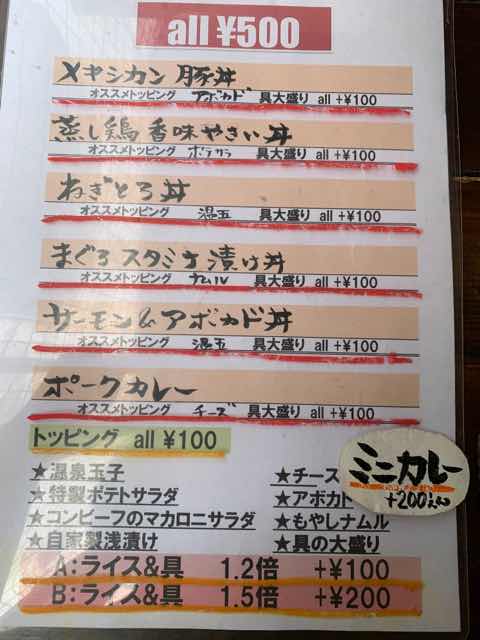 all ¥500
メキシカン 豚丼
オススメトッピング アボカド 具大盛り all +¥100
蒸し鶏 香味やさい丼
オススメトッピング ポテサラ 具大盛り all +¥100
ねぎとろ丼
オススメトッピング 温玉 具大盛り all +¥100
まぐろスタミナ漬け丼
オススメトッピング ナムル 具大盛り all +¥100
サーモン&アボカド丼
オススメトッピング 温玉 具大盛り all +¥100
ポークカレー
オススメトッピング チーズ 具大盛り all +¥100
トッピング all ¥100
★温泉玉子
★特製ポテトサラダ
★コンビーフのマカロニサラダ
★自家製浅漬け
★チーズ
★アボカド
★もやしナムル
★具の大盛り
ミニカレー
+200
A:ライス&具 1.2倍 +¥100
B:ライス&具 1.5倍 +¥200